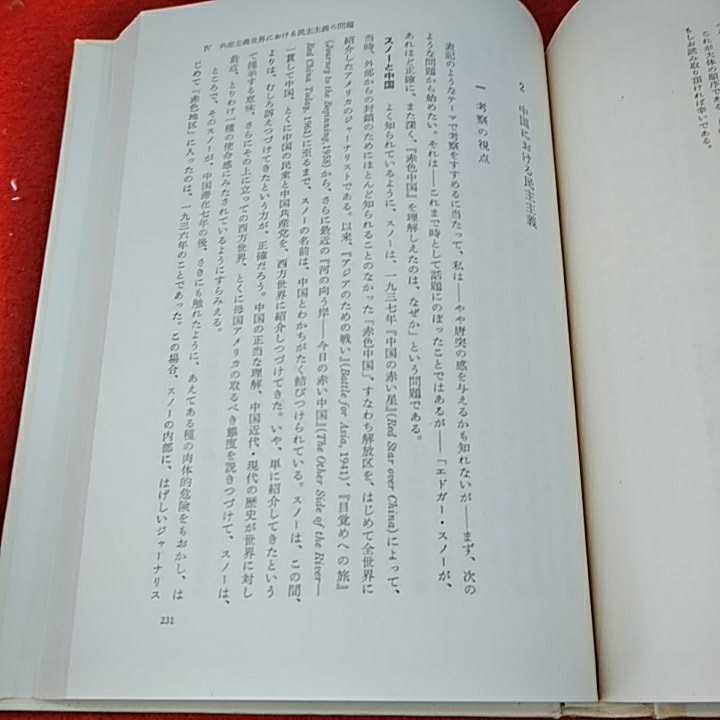 これが大体の順序で
もしお読み取り頂ければ幸いである。
2 中国における民主主義
一 考察の視点
表記のようなテーマで考察をすすめるに当たって、私は——やや唐突の感を与えるかも知れないが——まず、次の
ような問題から始めたい。それは——これまで時として話題にのぼったことではあるが——「エドガー・スノーが、
あれほど正確に、また深く、『赤色中国』を理解しえたのは、なぜか」という問題である。
スノーと中国 よく知られているように、スノーは、一九三七年『中国の赤い星』(Red Star over China)によって、
当時、外部からの封鎖のためにほとんど知られることのなかった「赤色中国」、すなわち解放区を、はじめて全世界に
紹介したアメリカのジャーナリストである。以来、『アジアのための戦い』(Battle for Asia, 1941)、『目覚めへの旅』
(Journey to the Beginning, 1958)から、さらに最近の『河の向う岸——今日の赤い中国』(The Other Side of the River—
Red China Today, 1962)に至るまで、スノーの名前は、中国とわかちがたく結びつけられている。スノーは、この間、
一貫して中国、とくに中国の民衆と中国共産党を、西方世界に紹介しつづけてきた。いや、単に紹介してきたという
よりは、むしろ訴えつづけてきたという方が、正確だろう。中国の正当な理解、中国近代・現代の歴史が世界に対し
て提示する意味、さらにその上に立っての西方世界、とくに母国アメリカの取るべき態度を説きつづけて、スノーは、
最近、とりわけ一種の使命感にみたされているようにすらみえる。
ところで、そのスノーが、中国滞在七年の後、さきにも触れたように、あえてある種の肉体的危険をもおかし、は
じめて「赤色地区」に入ったのは、一九三六年のことであった。この場合、スノーの内部に、はげしいジャーナリス
IV 外圧主義世界における民主主義の問題
231